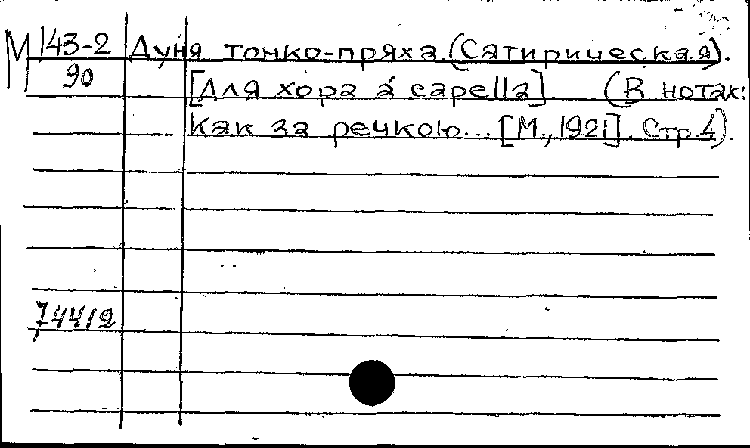 М 143-2 Дуня тонко-пряха. (Сатирическая).
90 [Для хора á capella] (В нотах:
Как за речкою... [М., 1921]. Стр. 4).
74412